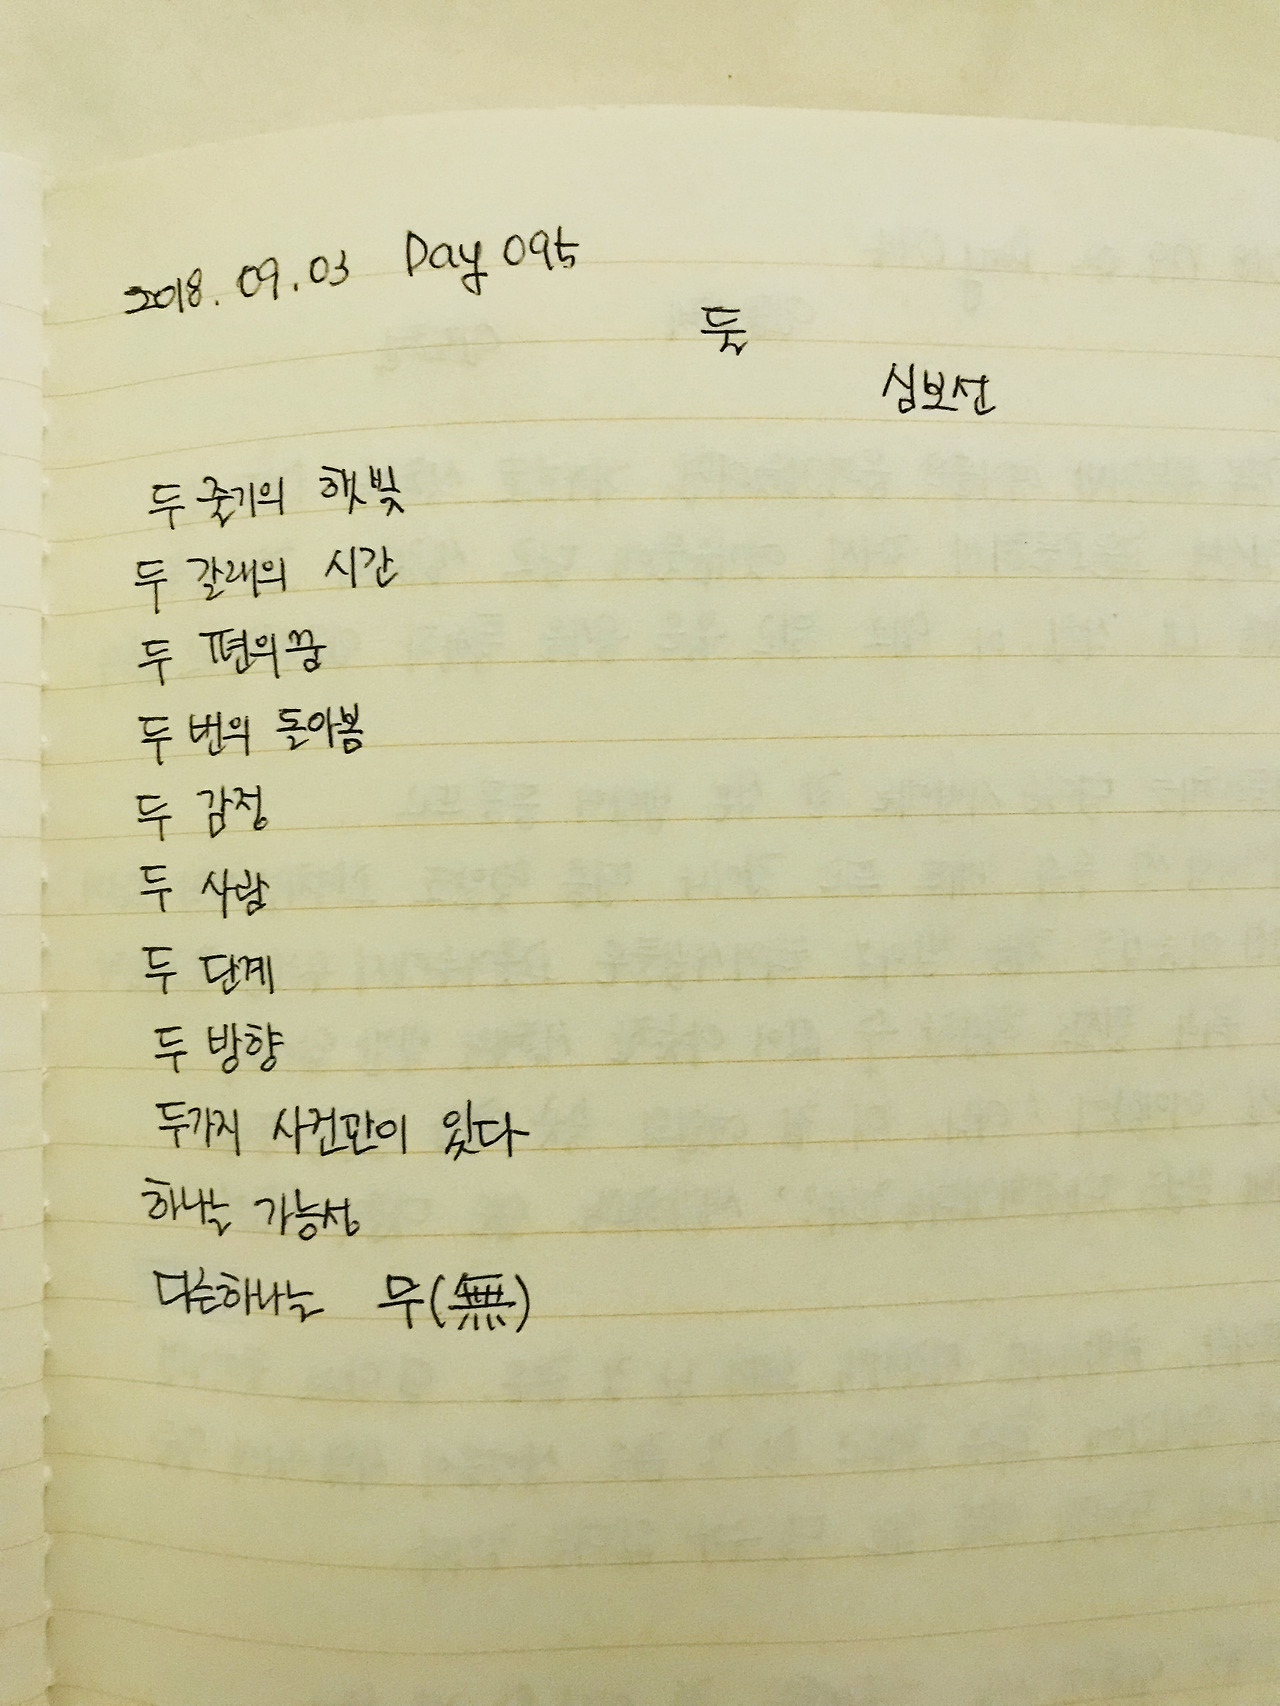 2018. 09. 03 Day 095
둘
심보선
두 줄기의 햇빛
두 갈래의 시간
두 편의 꿈
두 번의 돌아봄
두 감정
두 사람
두 단계
두 방향
두가지 사건만이 있다
하나는 가능성
다른하나는 무(無)